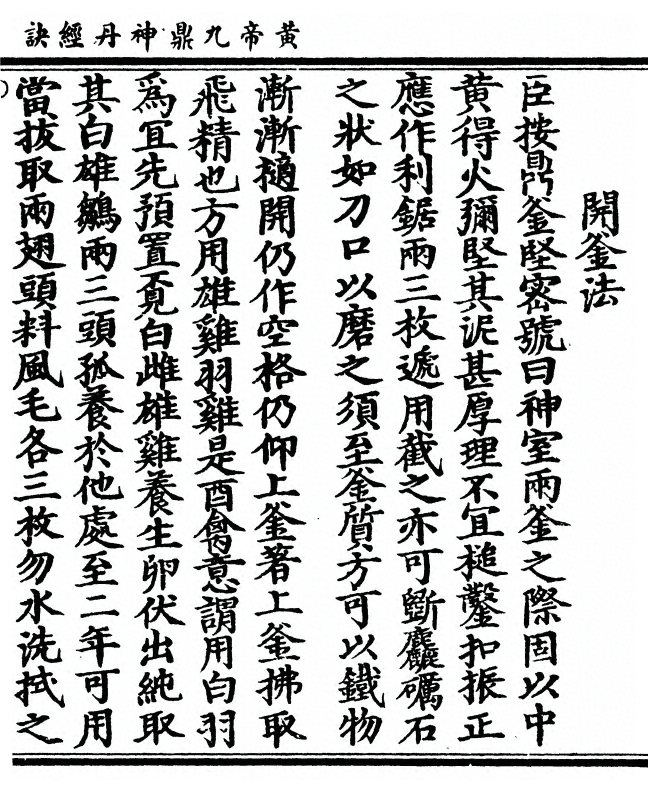 黃帝九鼎神丹經訣
開釜法
臣按鼎釜堅密號曰神室兩釜之際固以中
黃得火彌堅其泥甚厚理不冝槌鑿扣振正
應作利鋸兩三枚遞用截之亦可斲麤礪石
之狀如刀口以磨之須至釜質方可以鐵物
漸漸擿開仍作空格仍仰上釜著上釜拂取
飛精也方用雄雞羽雞是酉禽意謂用白羽
爲冝先預置覔白雌雄雞養生卵伏出純取
其白雄鶵兩三頭孤養於他處至二年可用
當拔取兩翅頭料風毛各三枚勿水洗拭之